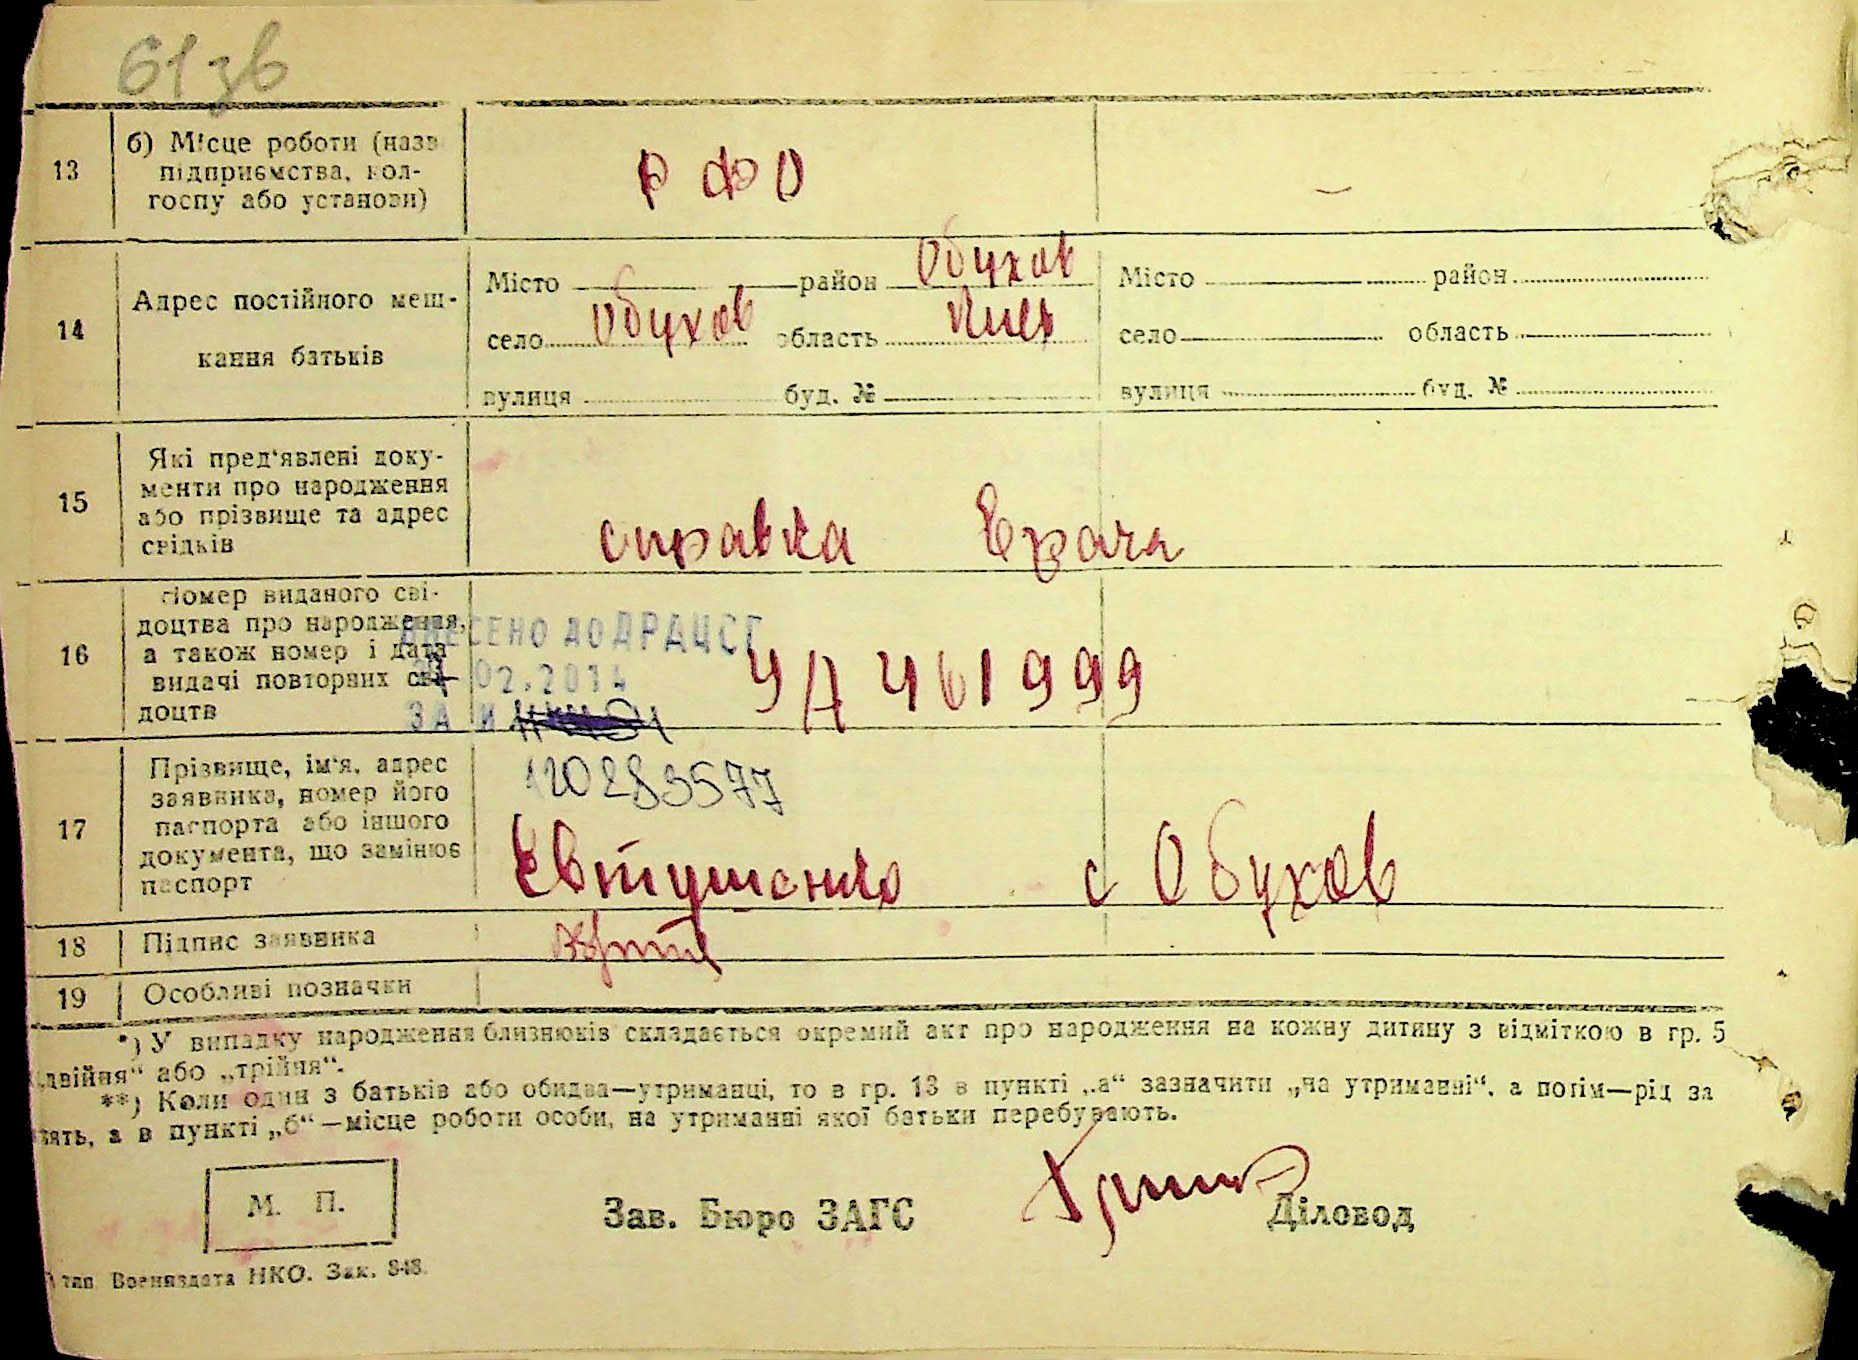 61зв
13
б) Місце роботи (назв
підприємства, кол-
госпу або установи)
Р Ф О
—
14
Адрес постійного меш-
кання батьків
Місто район Обухов
село Обухов область Киев
вулиця буд. №
Місто район
село область
вулиця буд. №
15
Які пред'явлені доку-
менти про народження
або прізвище та адрес
свідків
справка Врача
16
Номер виданого сві-
доцтва про народження,
а також номер і дата
видачі повторних сві-
доцтв
ВНЕСЕНО ДО ДРАЦСГ
02.2014
ЗА
УД 461999
17
Прізвище, ім'я, адрес
заявника, номер його
паспорта або іншого
документа, що замінює
паспорт
120283577
Евтушенко с Обухов
18
Підпис заявника
19
Особливі позначки
*) У випадку народження близнюків складається окремий акт про народження на кожну дитину з відміткою в гр. 5
„двійня“ або „трійня“.
**) Коли один з батьків або обидва—утриманці, то в гр. 13 в пункті „а“ зазначити „на утриманні“, а потім—рід за
нять, а в пункті „б“—місце роботи особи, на утриманні якої батьки перебувають.
М. П.
Зав. Бюро ЗАГС
Діловод
тип. Воениздата НКО. Зак. 848.